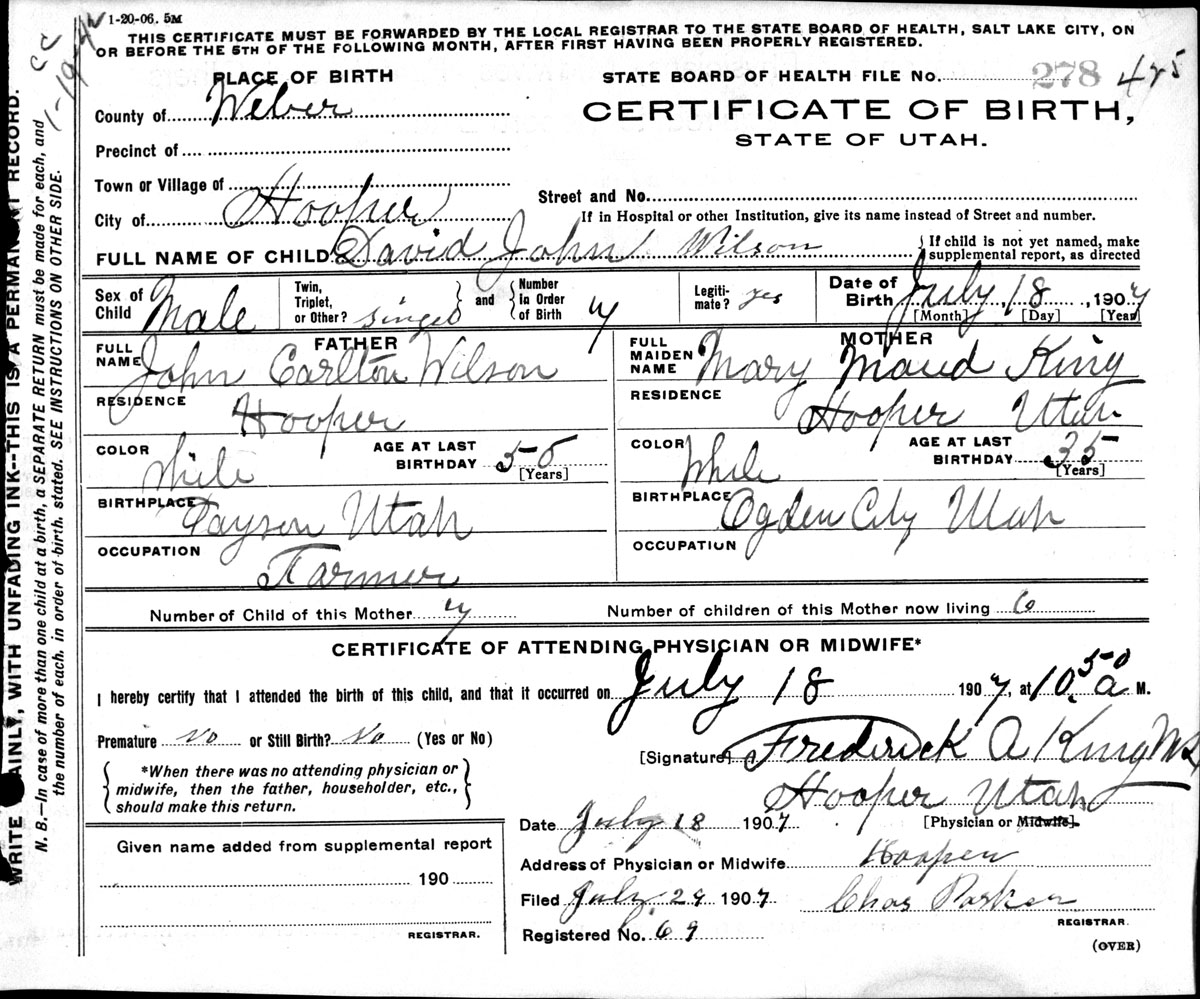 1-20-06. 5M
THIS CERTIFICATE MUST BE FORWARDED BY THE LOCAL REGISTRAR TO THE STATE BOARD OF HEALTH, SALT LAKE CITY, ON
OR BEFORE THE 5TH OF THE FOLLOWING MONTH, AFTER FIRST HAVING BEEN PROPERLY REGISTERED.
PLACE OF BIRTH
County of Weber
Precinct of
Town or Village of
City of Hooper
STATE BOARD OF HEALTH FILE No. 278 425
CERTIFICATE OF BIRTH,
STATE OF UTAH.
Street and No.
If in Hospital or other Institution, give its name instead of Street and number.
FULL NAME OF CHILD David John Wilson
If child is not yet named, make
supplemental report, as directed
Sex of Child Male
Twin, Triplet, or Other? singel
and Number in Order of Birth 7
Legiti-mate? yes
Date of Birth July 18, 1907
[Month] [Day] [Year]
FATHER
FULL NAME John Carlton Wilson
RESIDENCE Hooper
COLOR White AGE AT LAST BIRTHDAY 50 [Years]
BIRTHPLACE Payson Utah
OCCUPATION Farmer
MOTHER
FULL MAIDEN NAME Mary Maud King
RESIDENCE Hooper Utah
COLOR White AGE AT LAST BIRTHDAY 35 [Years]
BIRTHPLACE Ogden City Utah
OCCUPATION
Number of Child of this Mother 7 Number of children of this Mother now living 6
CERTIFICATE OF ATTENDING PHYSICIAN OR MIDWIFE*
I hereby certify that I attended the birth of this child, and that it occurred on July 18 1907, at 10.50 a M.
Premature No or Still Birth? No (Yes or No)
*When there was no attending physician or
midwife, then the father, householder, etc.,
should make this return.
[Signature] Frederick A King MD
Hooper Utah
[Physician or Midwife].
Date July 18 1907
Address of Physician or Midwife Hooper
Filed July 29 1907 Chas Parker
REGISTRAR.
Registered No. 69
(OVER)
Given name added from supplemental report
190
REGISTRAR.
WRITE PLAINLY, WITH UNFADING INK--THIS IS A PERMANENT RECORD.
N. B.—In case of more than one child at a birth, a SEPARATE RETURN must be made for each, and
the number of each, in order of birth, stated. SEE INSTRUCTIONS ON OTHER SIDE.